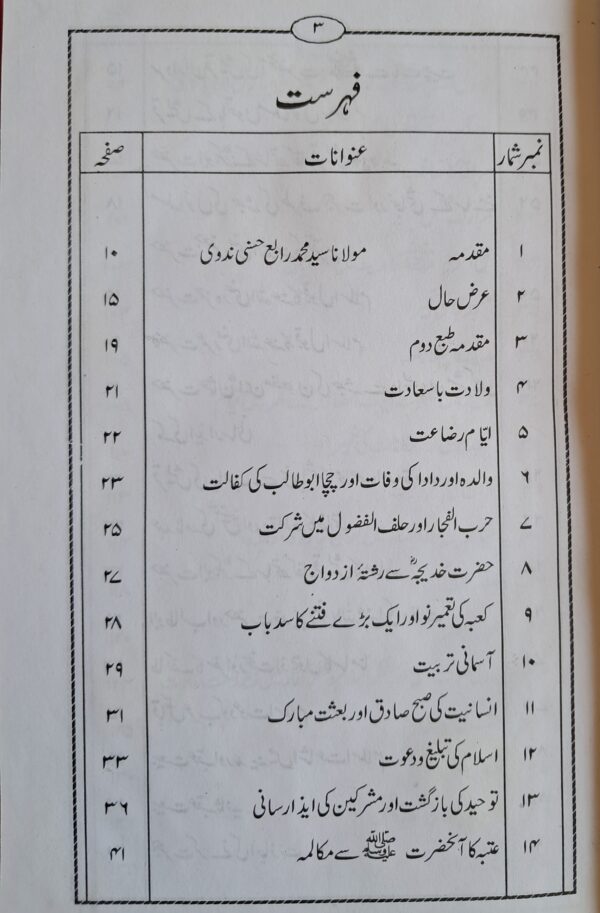 ۳
فہرست
نمبر شمار عنوانات صفحہ
۱ مقدمہ مولانا سید محمد رابع حسنی ندوی ۱۰
۲ عرض حال ۱۵
۳ مقدمہ طبع دوم ۱۹
۴ ولادت باسعادت ۲۱
۵ ایّام رضاعت ۲۲
۶ والدہ اور دادا کی وفات اور چچا ابوطالب کی کفالت ۲۳
۷ حرب الفجار اور حلف الفضول میں شرکت ۲۵
۸ حضرت خدیجہؓ سے رشتۂ ازدواج ۲۷
۹ کعبہ کی تعمیر نو اور ایک بڑے فتنے کا سدباب ۲۸
۱۰ آسمانی تربیت ۲۹
۱۱ انسانیت کی صبح صادق اور بعثت مبارک ۳۱
۱۲ اسلام کی تبلیغ و دعوت ۳۳
۱۳ توحید کی بازگشت اور مشرکین کی ایذا رسانی ۳۶
۱۴ عتبہ کا آنحضرت ﷺ سے مکالمہ ۴۱